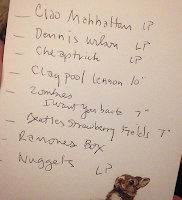 — Ciao Manhattan LP
— Dennis Wilson LP
— Cheaptrick LP
— Claypool Lennon 10"
— Zombies
I want you back 7"
— Beatles Strawberry Fields 7"
— Ramones Box
— Nuggets LP